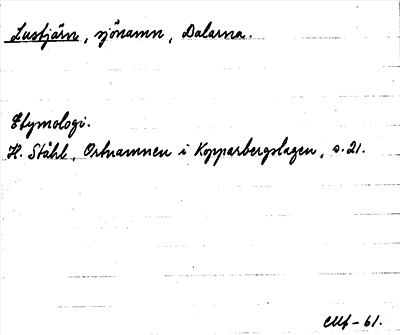 Lustjärn, sjönamn, Dalarna.
Etymologi.
H. Ståhl, Ortnamnen i Kopparbergslagen, s. 21.
-61.